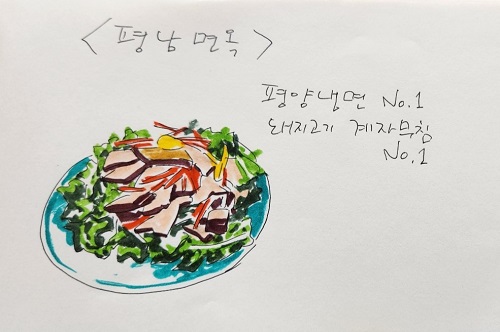 <평남면옥>
평양냉면 No.1
돼지고기 계자무침
No.1